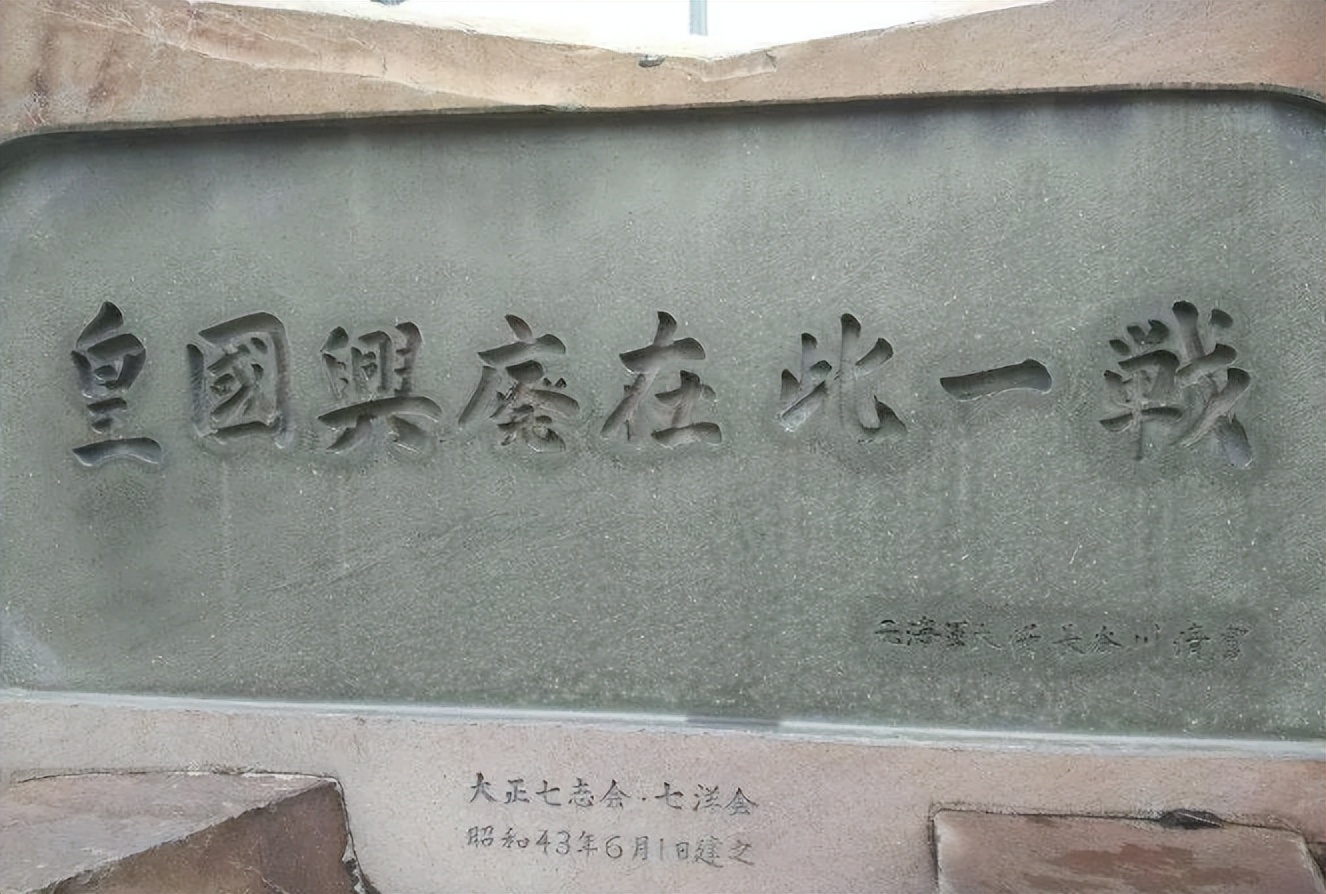 皇國興廃在此一戦
元海軍大将長谷川清書
大正七志会・七洋会
昭和43年6月1日建之